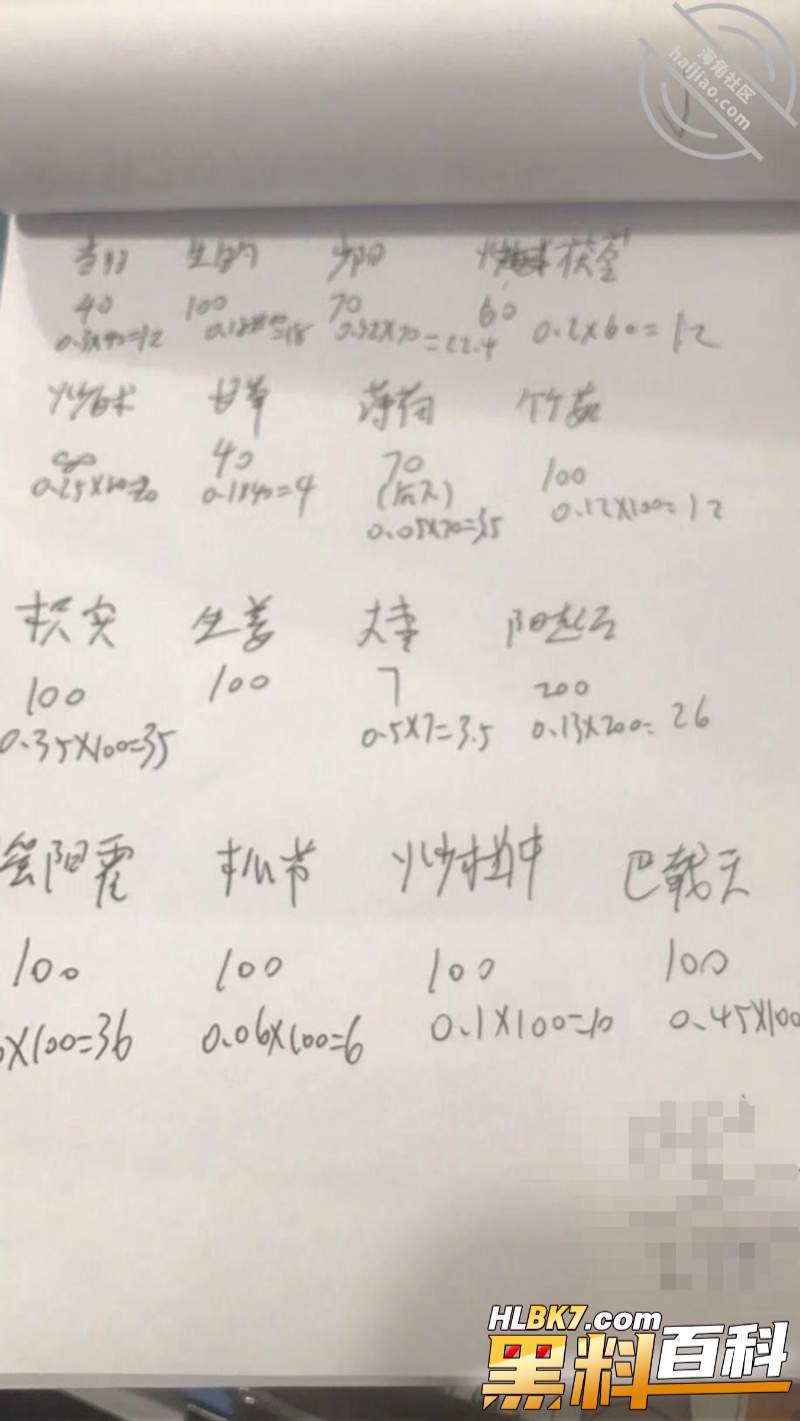 海角社区
haijiao.com
茯苓
40 100 70 60
0.3x40=12 0.18x100=18 0.32x70=22.4 0.2x60=12
炒白术 甘草 薄荷 竹茹
80 40 70 100
0.25x80=20 0.1x40=4 (后下) 0.12x100=12
0.05x70=3.5
枳实 生姜 大枣 阳起石
100 100 7 200
0.35x100=35 0.5x7=3.5 0.13x200=26
阳霍 松节 炒杜仲 巴戟天
100 100 100 100
x100=36 0.06x100=6 0.1x100=10 0.45x100
HLBK7.com
黑料百科